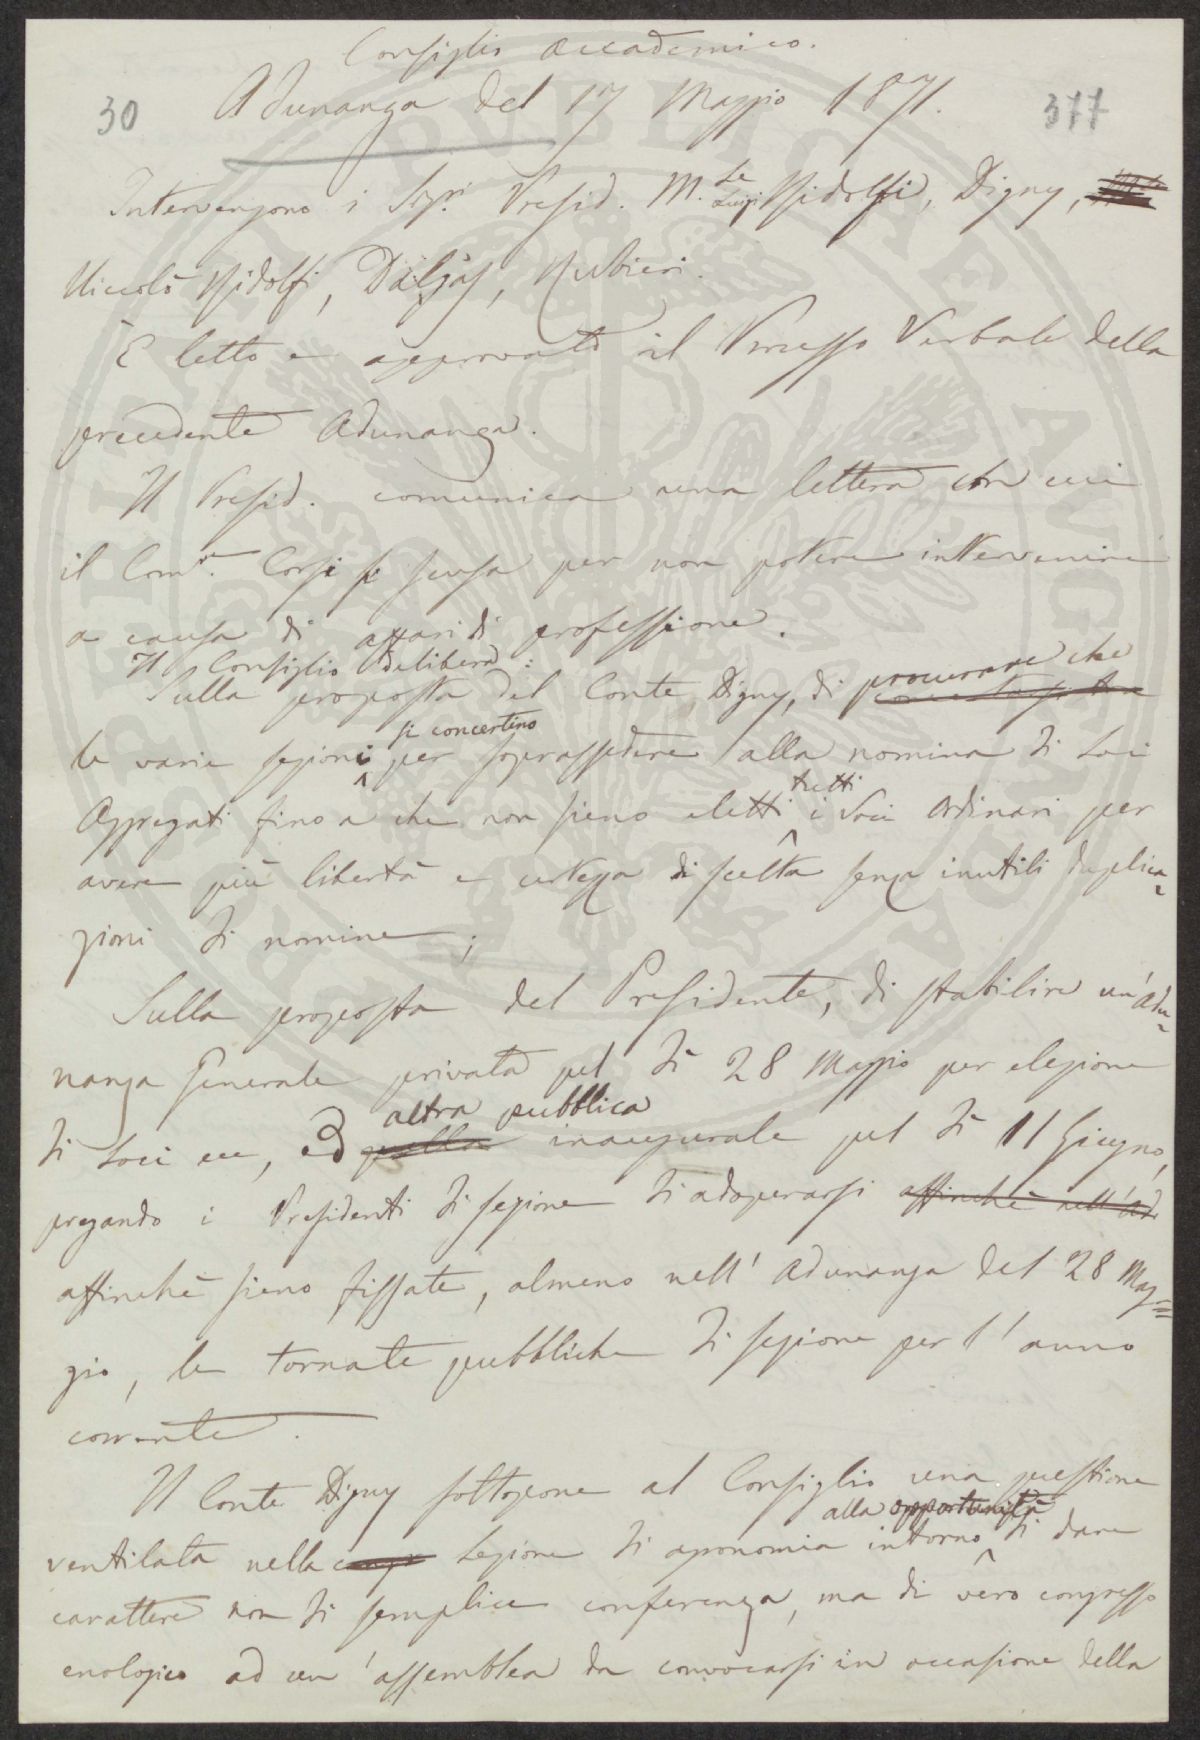 Consiglio Accademico.
30 Adunanza del 17 Maggio 1871. 377
Intervengono i Sigri. Presid. M.se Luigi Ridolfi, Digny,
Niccolò Ridolfi, Dalgas, Rubieri.
È letto e approvato il Processo Verbale della
precedente Adunanza.
Il Presid. comunica una lettera con cui
il Comre. Corsi si scusa per non potere intervenire
a causa di affari di professione.
Il Consiglio delibera:
Sulla proposta del Conte Digny, di procurare che
le varie sezioni si concertino per soprassedere alla nomina di Soci
Aggregati fino a che non sieno eletti tutti i Soci Ordinari per
avere più libertà e certezza di scelta senza inutili duplica-
zioni di nomine;
Sulla proposta del Presidente, di stabilire un'adu-
nanza generale privata pel dì 28 Maggio per elezione
di Soci ec, ed quella altra pubblica inaugurale pel dì 11 Giugno,
pregando i Presidenti di sezione di adoperarsi affinchè nell'ad
affinchè sieno fissate, almeno nell'adunanza del 28 Mag-
gio, le tornate pubbliche di sezione per l'anno
corrente.
Il Conte Digny sottopone al Consiglio una questione
ventilata nella Sezione di agronomia intorno alla opportunità di dare
carattere non di semplice conferenza, ma di vero congresso
enologico ad un'assemblea da convocarsi in occasione della